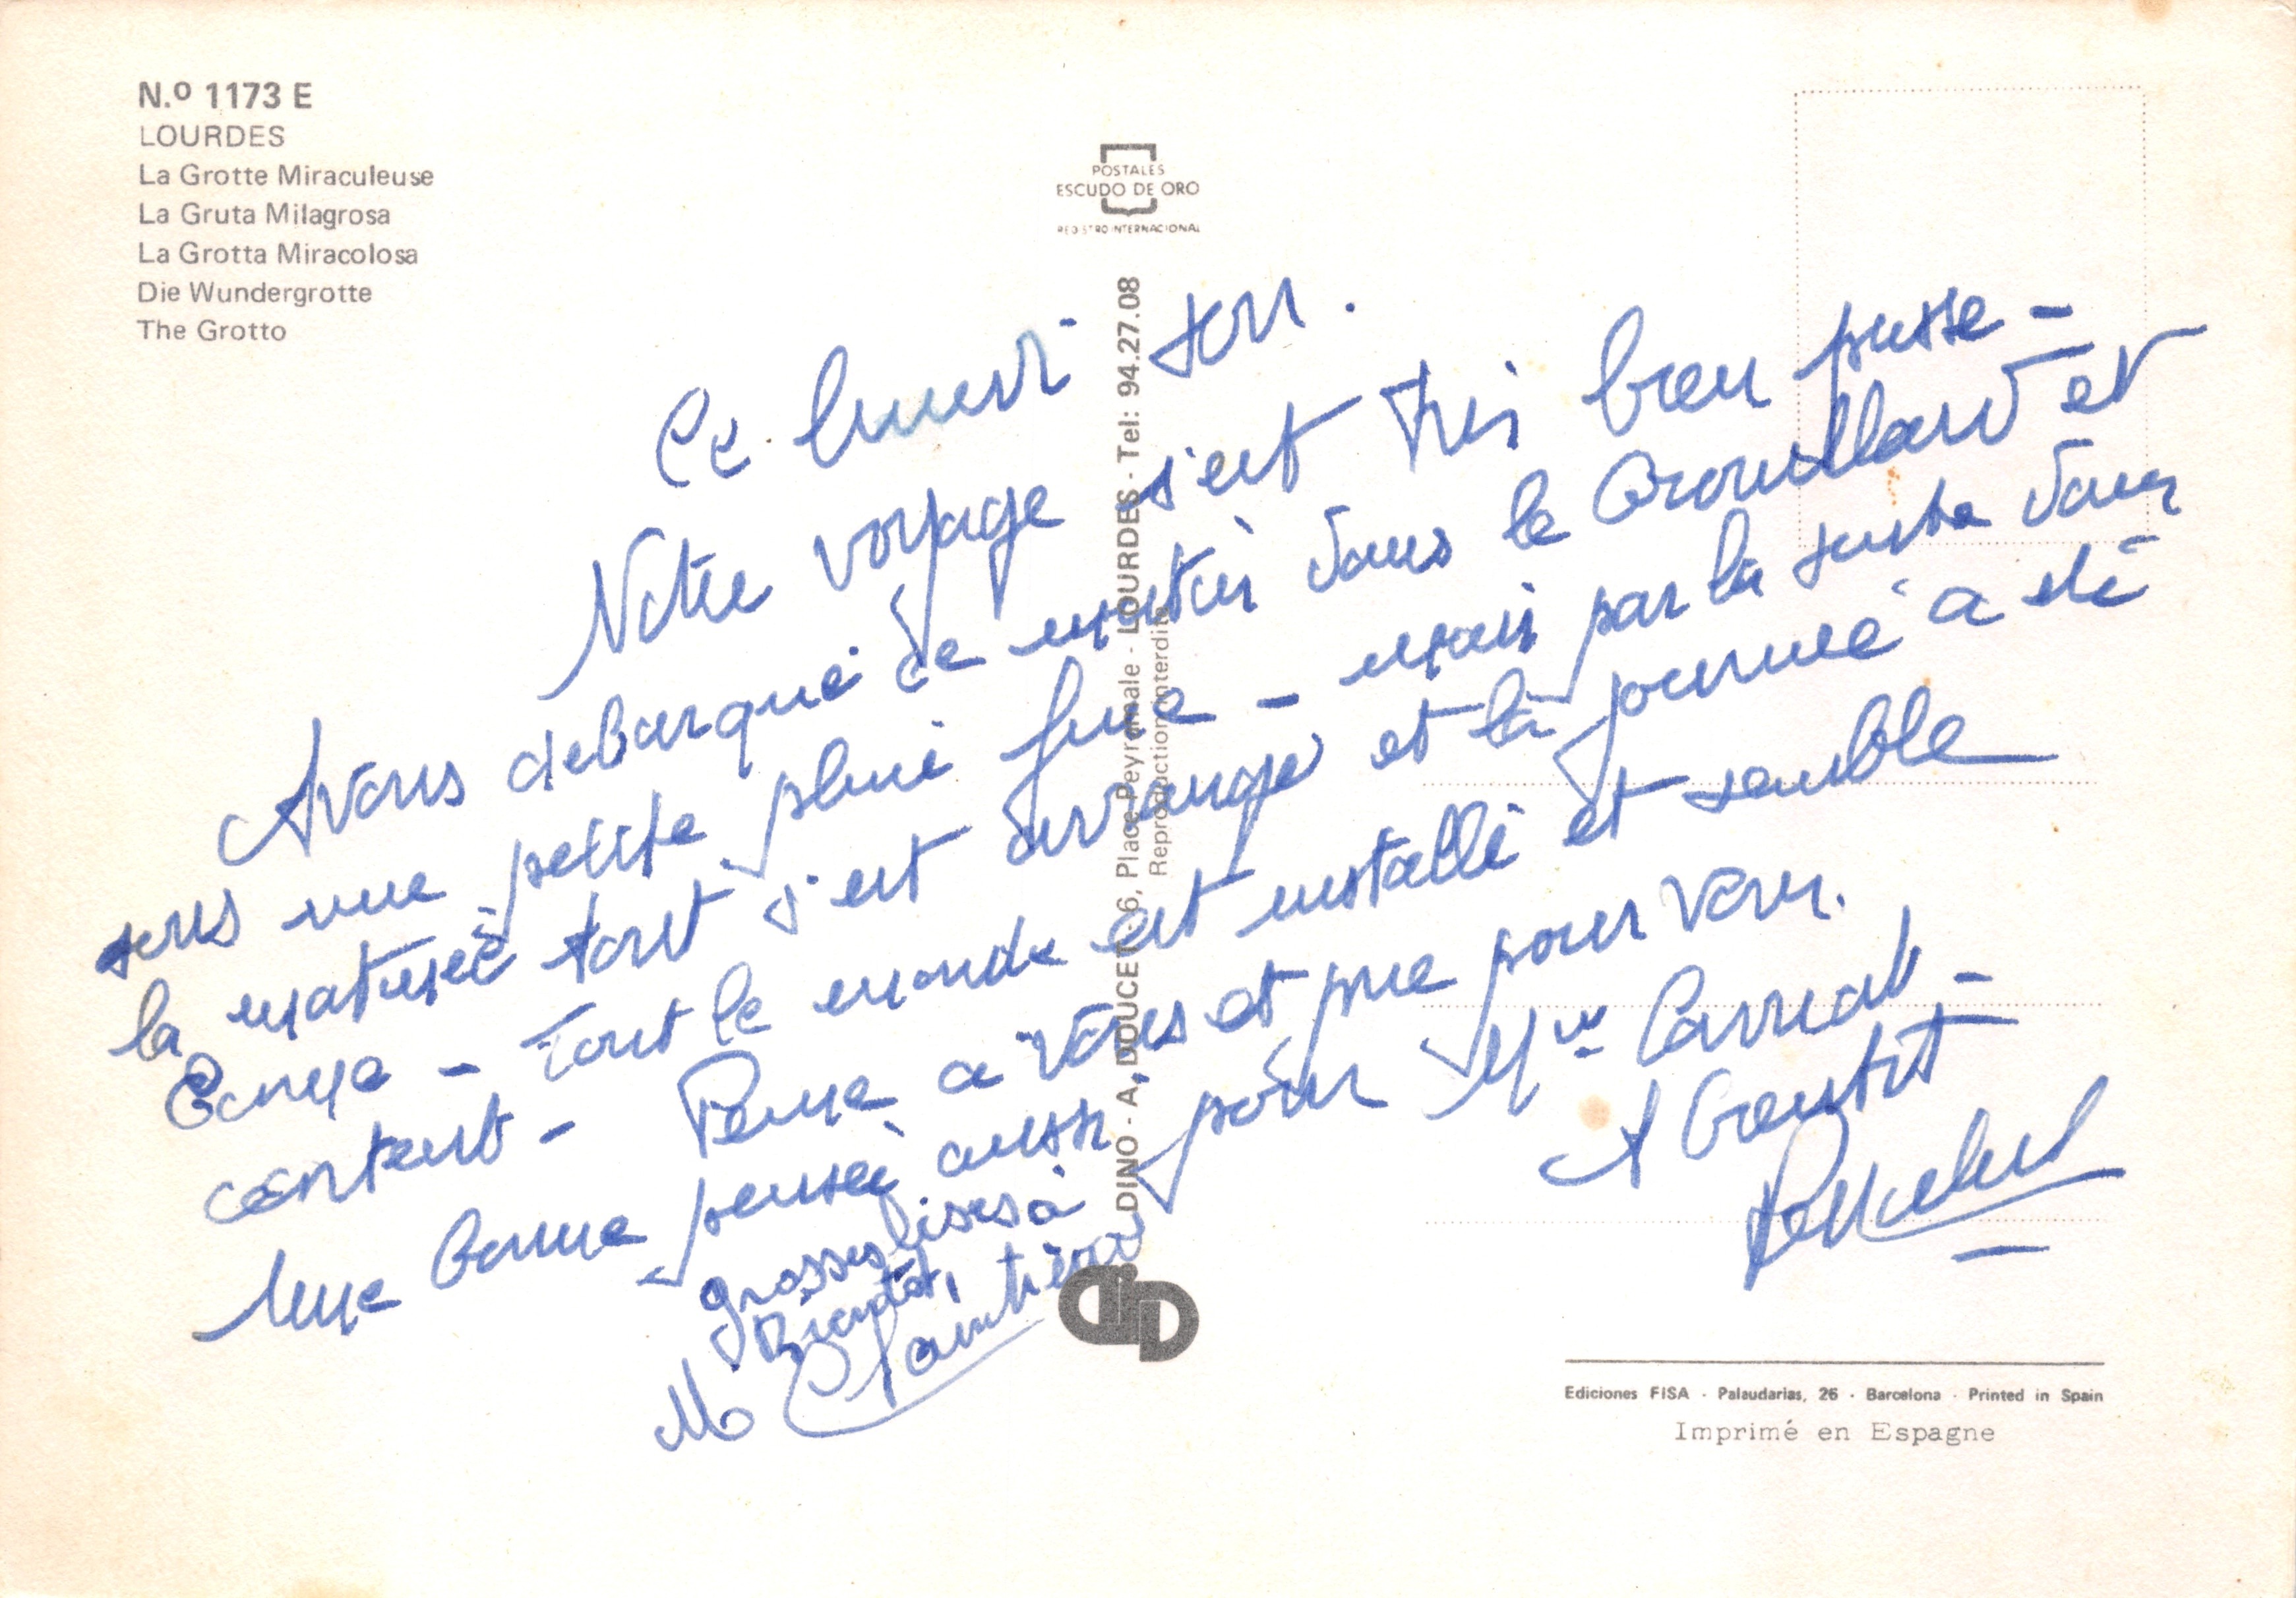 N.º 1173 E
LOURDES
La Grotte Miraculeuse
La Gruta Milagrosa
La Grotta Miracolosa
Die Wundergrotte
The Grotto
POSTALES
ESCUDO DE ORO
REGISTRO INTERNACIONAL
DINO - A. DOUCET, 6, Place Peyramale - LOURDES - Tel: 94.27.08
Reproduction interdite
Ce lundi soir.
Notre voyage s'est très bien passe -
Avons debarqué ce matin dans le Brouillard et
sous une petite pluie fine - mais par la suite dans
la matinée tout s'est arrangé et la journée a été
Bonne - Tout le monde est installé et semble
content - Pense a vous et prie pour vous.
Une bonne pensée aussi pour Mme
A bientôt -
grosses bises à
Bientôt,
M
Ediciones FISA - Palaudarias, 26 - Barcelona - Printed in Spain
Imprimé en Espagne